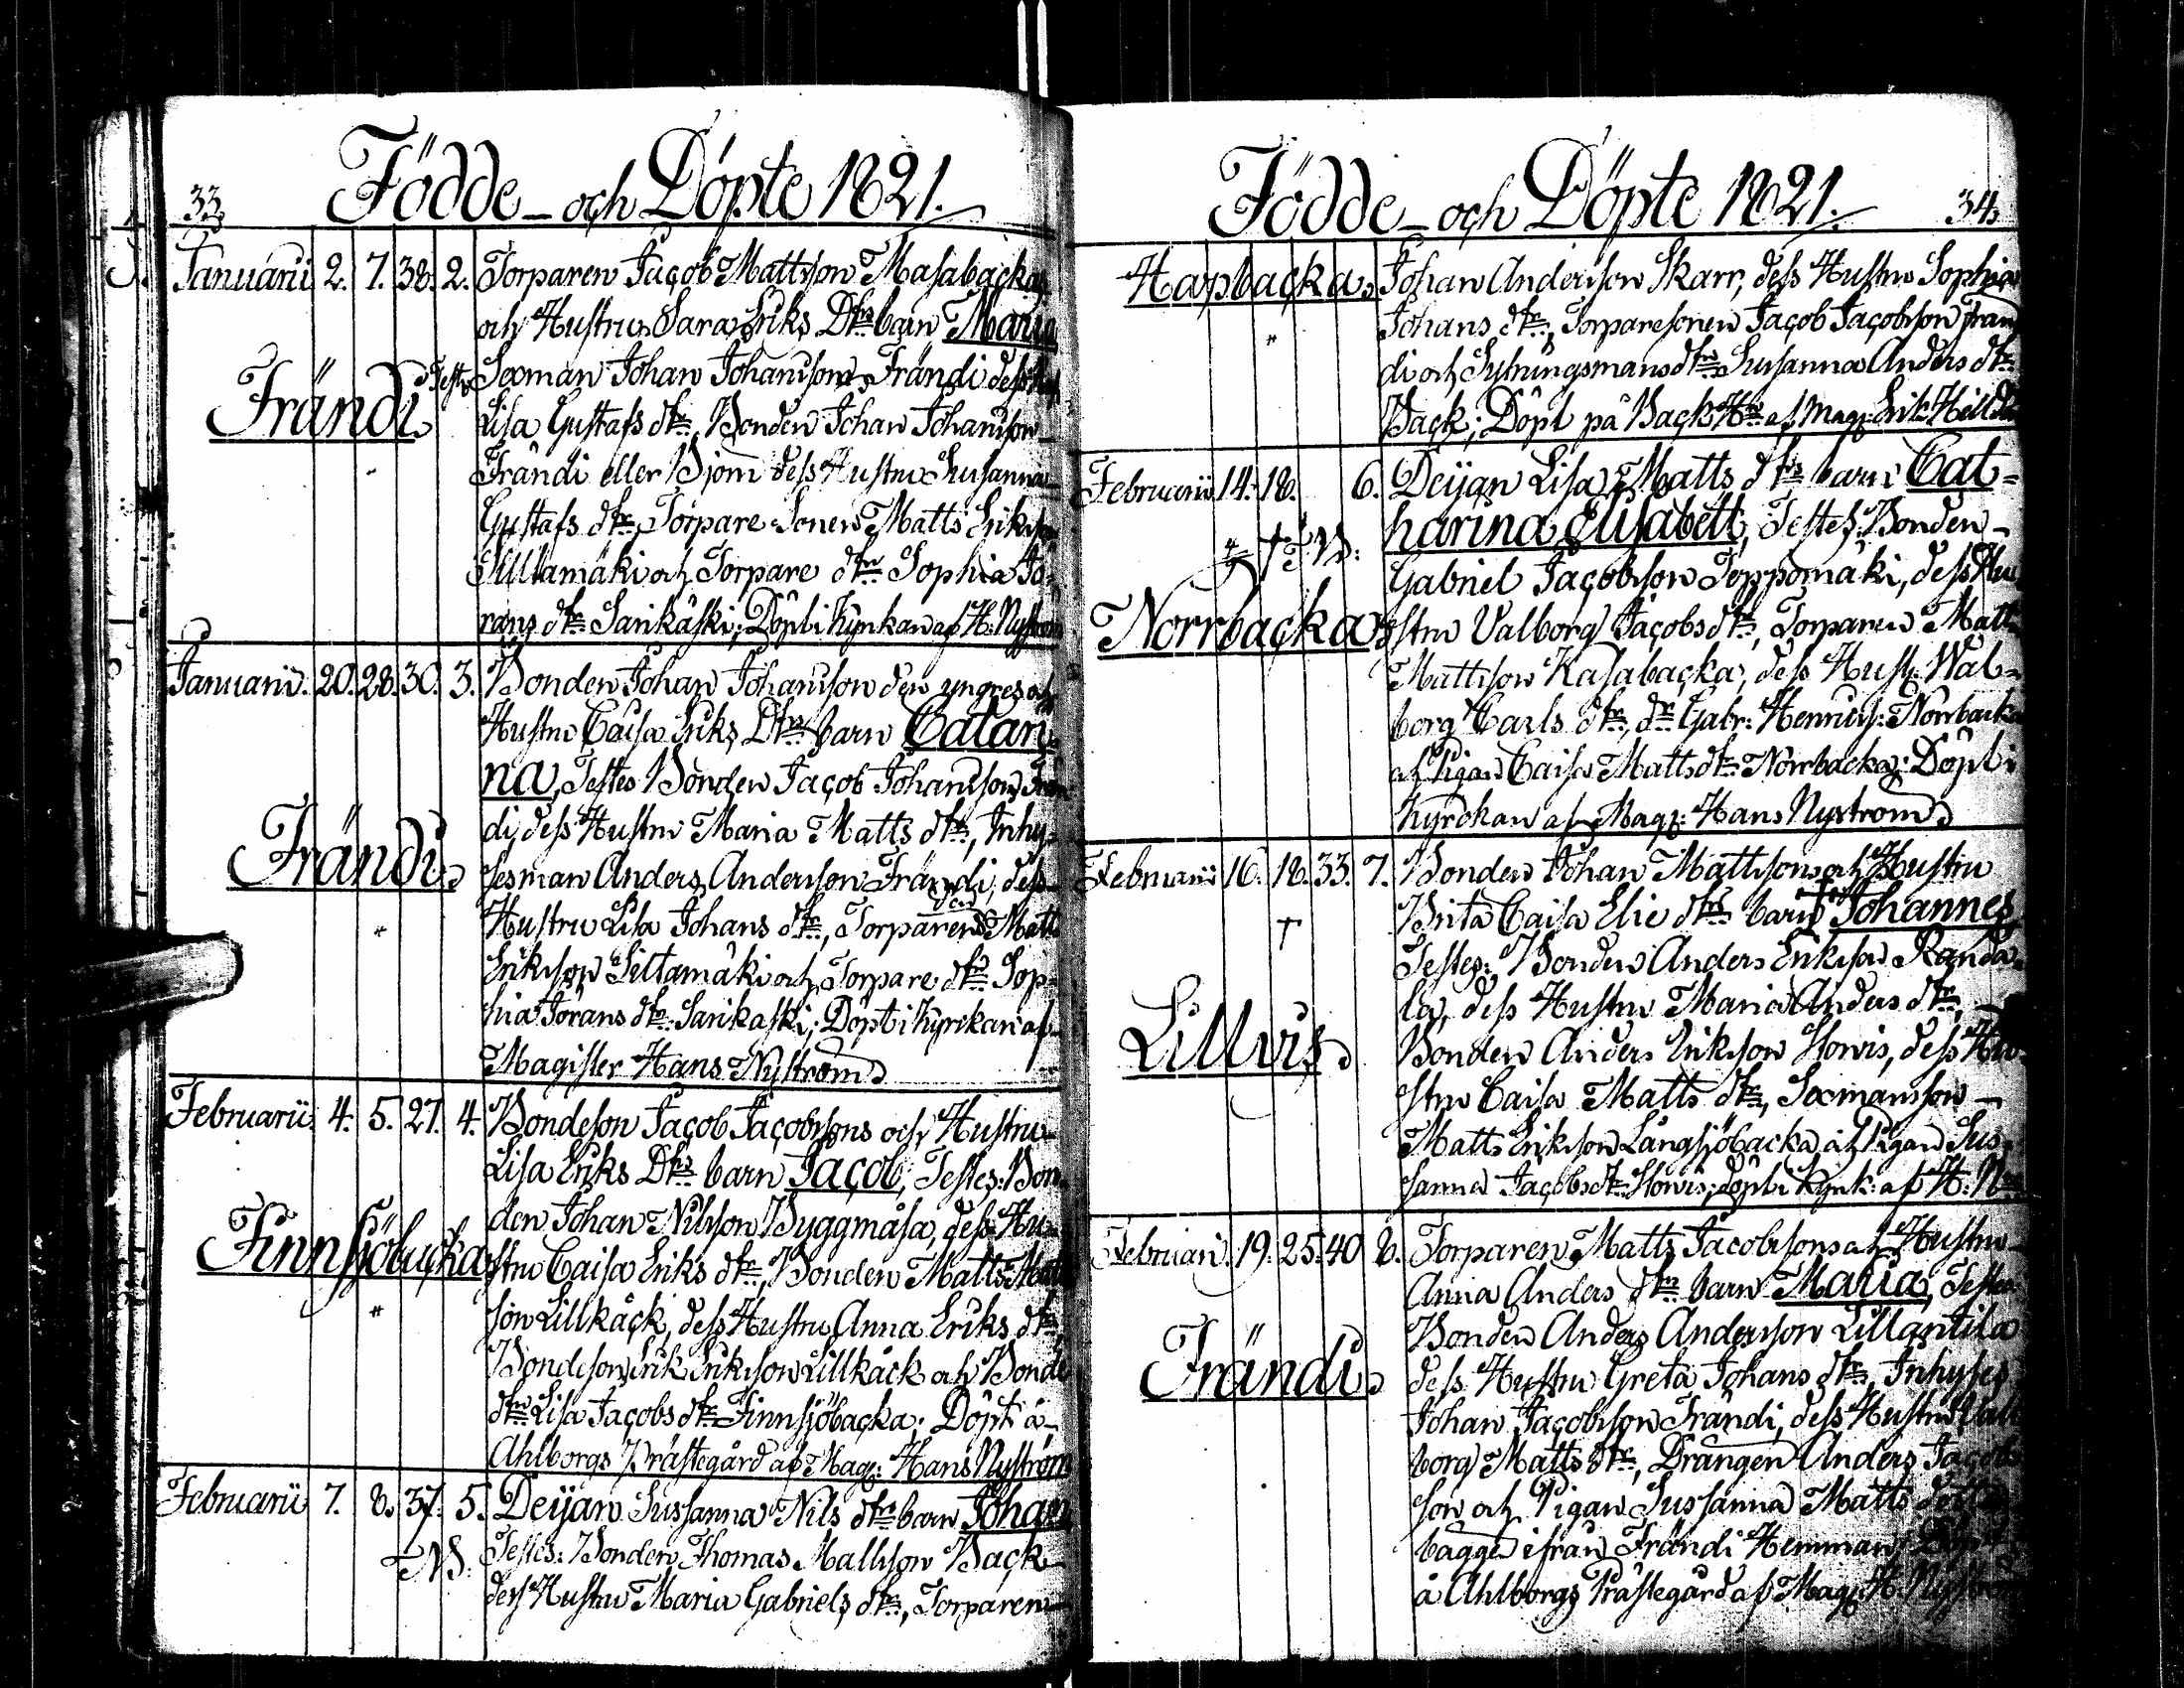 33
Födde - och Döpte 1821.
Januarii 2. 7. 38. 2. Torparen Jacob Mattsson Masabacka
och Hustru Sara Eriks Dtrs barn Maria
Testes Sexman Johan Johansson Frändi dess
Frändi Lisa Gustafs dtr, Bonden Johan Johansson
Frändi eller Björn dess Hustru Susanna
Gustafs dtr, Torpare Sonen Matts Eriksson
Sillamäki och Torpare dtr Sophia Jö-
rans dtr Sarikäski; Döpt i Kyrkan af H: Nyström
Januarii. 20. 28. 30. 3. Bonden Johan Johansson den yngres och
Hustru Caisa Eriks Dtrs barn Catari
na, Testes Bonden Jacob Johansson Frän
di, dess Hustru Maria Matts dtr, Inhy-
Frändi sesman Anders Andersson Frändi, dess
Hustru Lisa Johans dtr, Torparen Matts
Eriksson Sittamäki och Torpare dtr Sop-
hia Jörans dtr Sarikaski; Döpt i Kyrckan af
Magister Hans Nyström
Februarii 4. 5. 27. 4. Bondeson Jacob Jacobssons och Hustru
Lisa Eriks Dtrs barn Jacob, Testes: Bon
den Johan Nilsson Byggmäsa, dess Hu-
Finnsjöbacka stru Caisa Eriks dtr, Bonden Matts Matts
son Lillkäck, dess Hustru Anna Eriks dtr
Bondeson Erik Eriksson Lillkäck och Bonde
dtr Lisa Jacobs dtr Finnsjöbacka; Döpt å
Ahlborgs Prästegård af Mag: Hans Nyström
Februarii 7. 8. 37. 5. Deijan Sussanna Nils dtrs barn Johan
Testes: Bonden Thomas Mattsson Back
dess Hustru Maria Gabriels dtr, Torparen
Födde - och Döpte 1821. 34
Hapbacka Johan Andersson Skarr, dess Hustru Sophia
Johans dtr, Torparesonen Jacob Jacobsson Frän
di och Sytningsmans dtr Susanna Anders dtr
Back; Döpt på Back Hn af Mag: Erik
Februarii 14. 18. 6. Deijan Lisa Matts dtrs barn Cat-
harina Elisabett, Testes: Bonden
Gabriel Jacobsson Toppomäki, dess Hu
Norrbacka stru Valborg Jacobs dtr, Torparen Matts
Mattsson Kasabacka, dess Hust: Wal-
borg Carls dtr, dr Gabr: Henriss: Norrbacka
och Pigan Caisa Matts dtr Norrbacka; Döpt i
Kyrckan af Mag: Hans Nyström
Februarii 16. 18. 33. 7. Bonden Johan Mattssons och Hustru
Brita Caisa Elie dtrs barn Johannes
Testes: Bonden Anders Eriksson Randa-
la, dess Hustru Maria Anders dtr,
Lillvis Bonden Anders Eriksson Storvis, dess Hu
stru Caisa Matts dtr, Sexmansson
Matts Eriksson Långsjöbacka och Pigan Sus-
sanna Jacobs dtr Storvis; döpt i Kyrk: af H: N
Februari. 19. 25. 40 8. Torparen Matts Jacobssons och Hustru
Anna Anders dtrs barn Maria, Testes
Bonden Anders Andersson Lillantila
Frändi dess Hustru Greta Johans dtr, Inhyses
Johan Jacobsson Frändi, dess Hustru Val
borg Matts dtr, Drängen Anders Jacobs
son och Pigan Sussanna Matts dotter
bägge ifrån Frändi Hemman; Döpt
å Ahlborgs Prästegård af Mag: H: Nyström